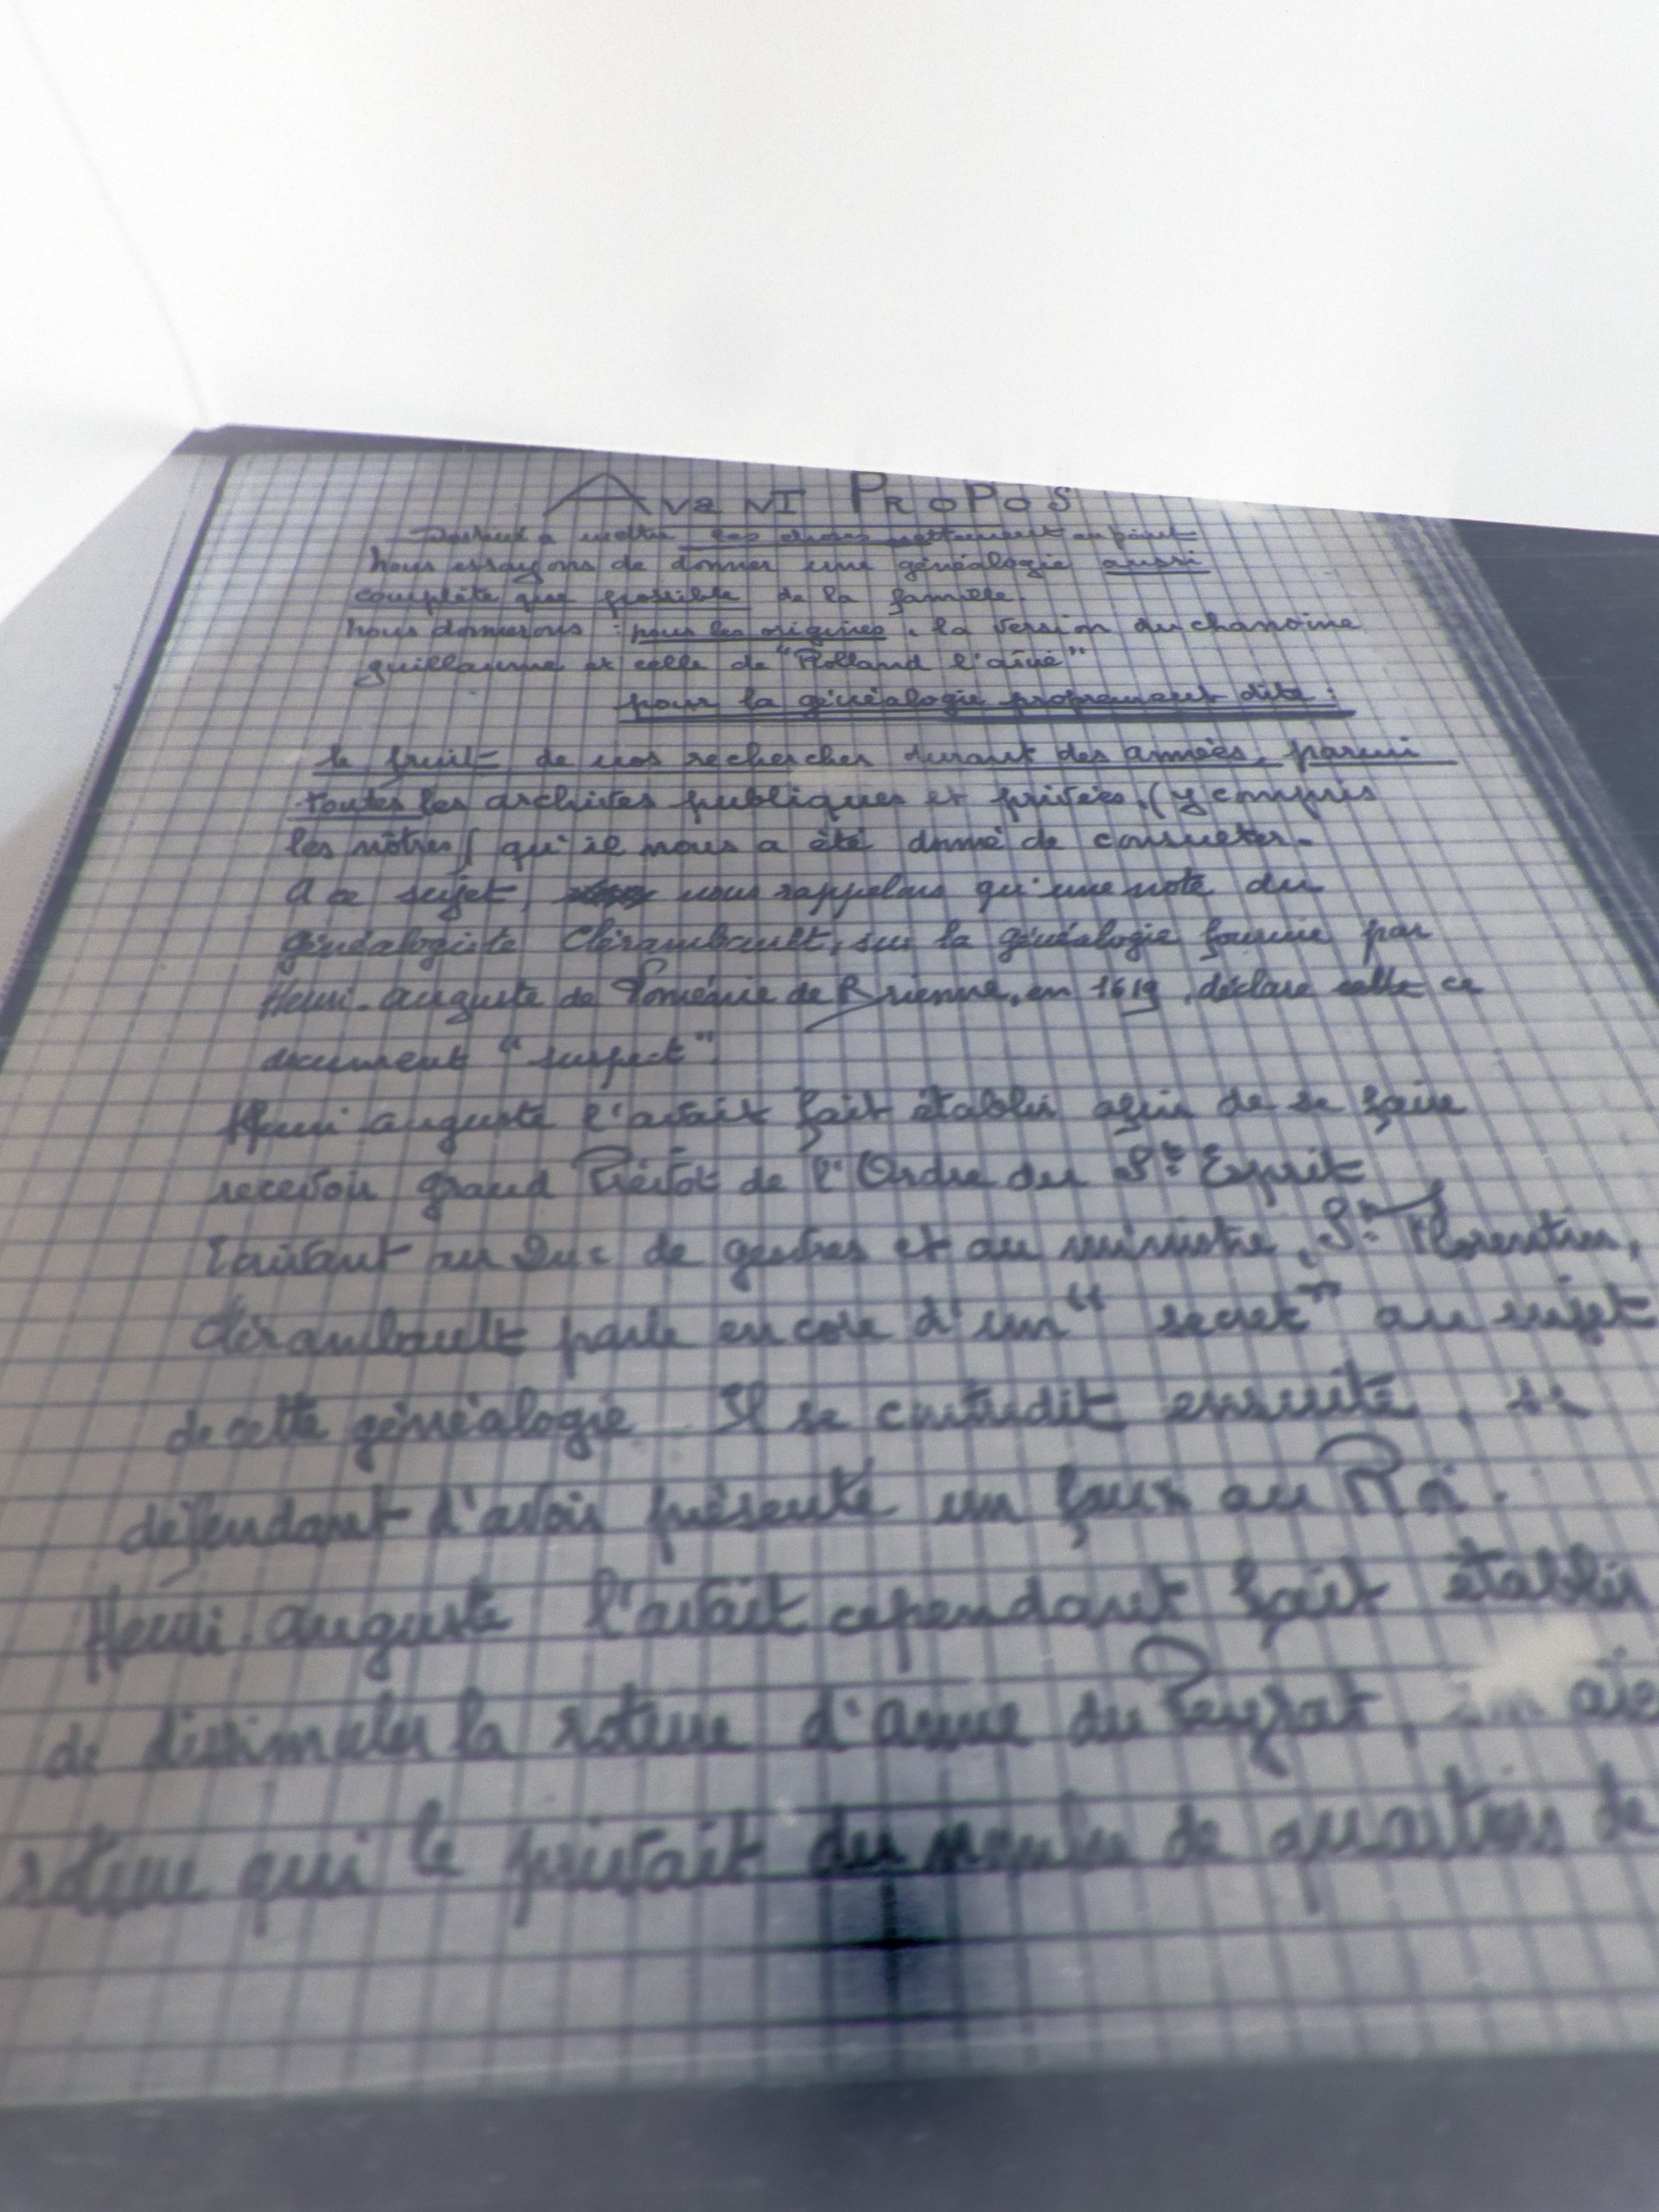 AVANT PROPOS
Destiné à mettre les choses nettement au point
Nous essayons de donner une généalogie aussi
complète que possible de la famille.
Nous donnerons : pour les origines, la version du chanoine
guillaume et celle de "Rolland l'aîné"
pour la généalogie proprement dite :
le fruit de nos recherches durant des années, parmi
toutes les archives publiques et privées, (y compris
les nôtres) qu'il nous a été donné de consulter.
A ce sujet, nous rappelons qu'une note du
généalogiste Clérambault, sur la généalogie fournie par
Henri-Auguste de Loménie de Brienne, en 1619, déclare ce
document "suspect".
Henri Auguste l'avait fait établir afin de se faire
recevoir grand Prévôt de l'Ordre du St Esprit
Ecrivant au Duc de gesvres et au ministre, St Florentin,
Clérambault parle encore d'un "secret" au sujet
de cette généalogie. Il se contredit ensuite, se
défendant d'avoir présenté un faux au Roi.
Henri Auguste l'avait cependant fait établir
de dissimuler la roture d'Anne du Peyrat,
roture qui le privait du nombre de quartiers de